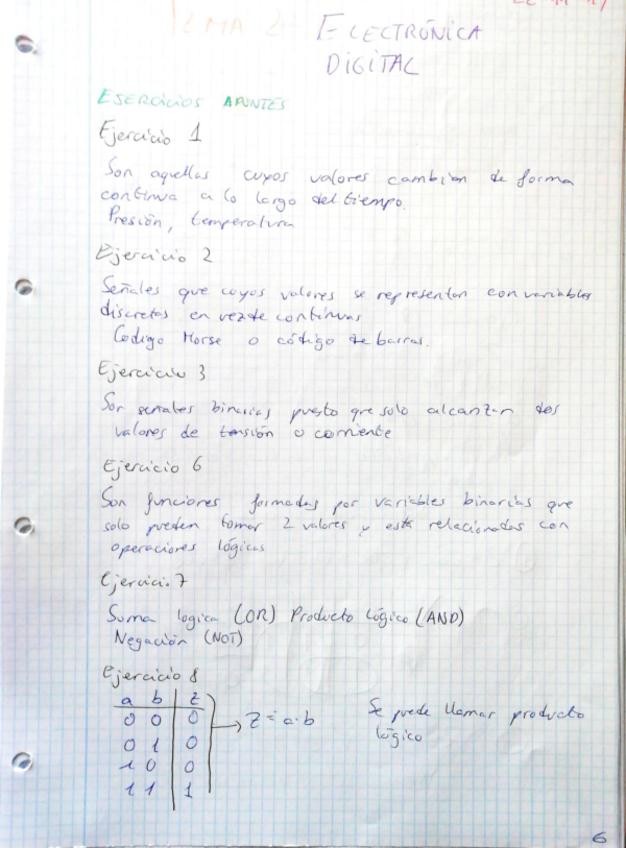 TEMA 2 ELECTRÓNICA
DIGITAL
EJERCICIOS APUNTES
Ejercicio 1
Son aquellas cuyos valores cambian de forma
continua a lo largo del tiempo.
Presión, temperatura
Ejercicio 2
Señales que cuyos valores se representan con variables
discretas en vez de continuas
Codigo Morse o código de barras.
Ejercicio 3
Son señales binarias puesto que solo alcanzan dos
valores de tensión o corriente
Ejercicio 6
Son funciones formadas por variables binarias que
solo pueden tomar 2 valores y está relacionadas con
operaciones lógicas
Ejercici. 7
Suma logica (OR) Producto lógico (AND)
Negación (NOT)
Ejercicio 8
a b z
0 0 0
0 1 0
1 0 0
1 1 1
→ Z = a·b
Se puede llamar producto
lógico
6